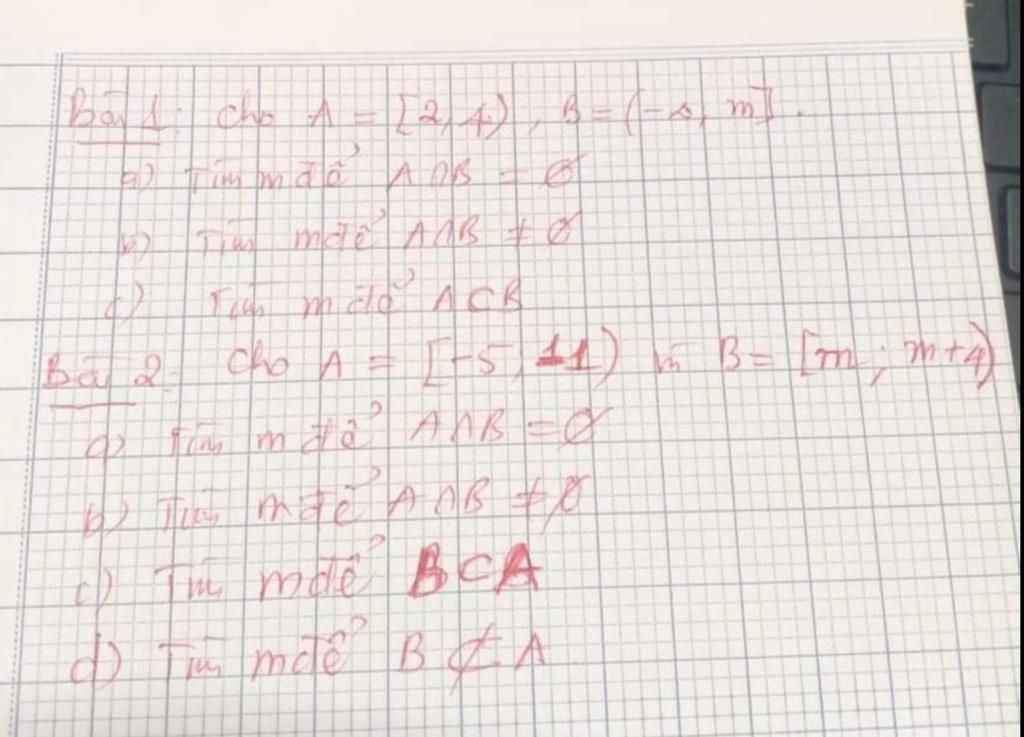 Bài 1: Cho A = [2, 4), B = (-∞, m].
a) Tìm m để A∩B = ∅
b) Tìm m để A∩B ≠ ∅
c) Tìm m để A⊂B
Bài 2: Cho A = [-5, 11) và B = [m; m+4)
a) Tìm m để A∩B = ∅
b) Tìm m để A∩B ≠ ∅
c) Tìm m để B⊂A
d) Tìm m để B ⊄ A